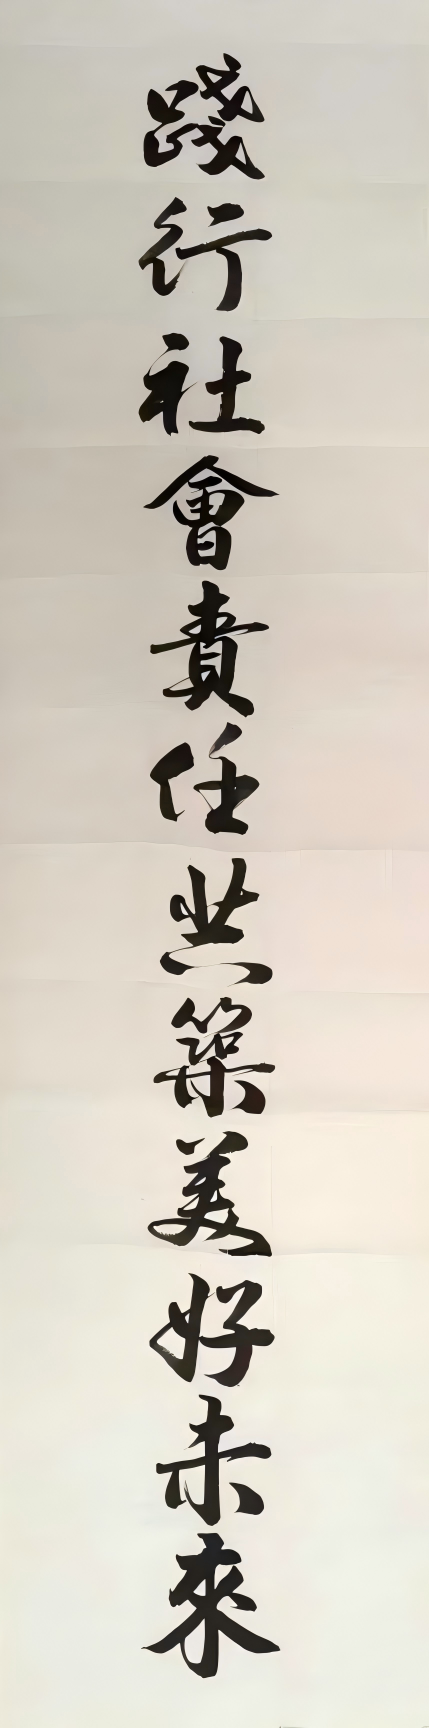 踐行社會責任共築美好未來